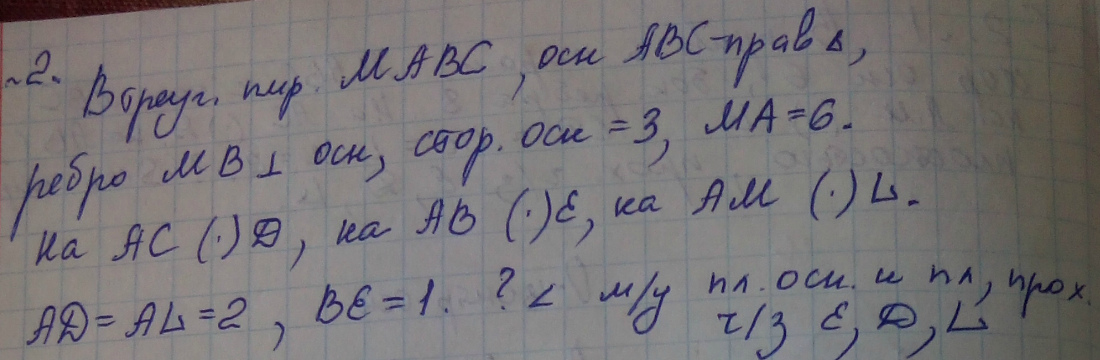 №2. В треуг. пир. МАВС, осн АВС-прав ∆,
ребро МВ ⊥ осн, стор. осн = 3, МА=6.
На АС (·) D, на АВ (·) E, на АМ (·) L.
AD = AL = 2, BE = 1. ? ∠ м/у пл. осн. и пл, прох.
ч/з E, D, L